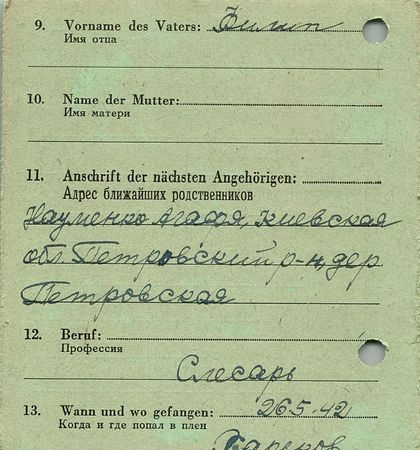 9. Vorname des Vaters: Филип
Имя отца
10. Name der Mutter:
Имя матери
11. Anschrift der nächsten Angehörigen:
Адрес ближайших родственников
Науменко Агафя, Киевская
обл. Петровский р-н, дер
Петровская
12. Beruf:
Профессия
Слесарь
13. Wann und wo gefangen: 26.5-42
Когда и где попал в плен
Харьков